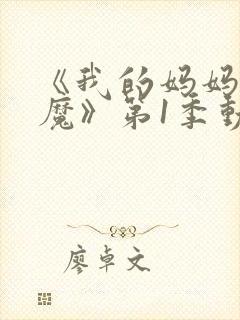 《我的妈妈
魔》第1季動
廖卓文